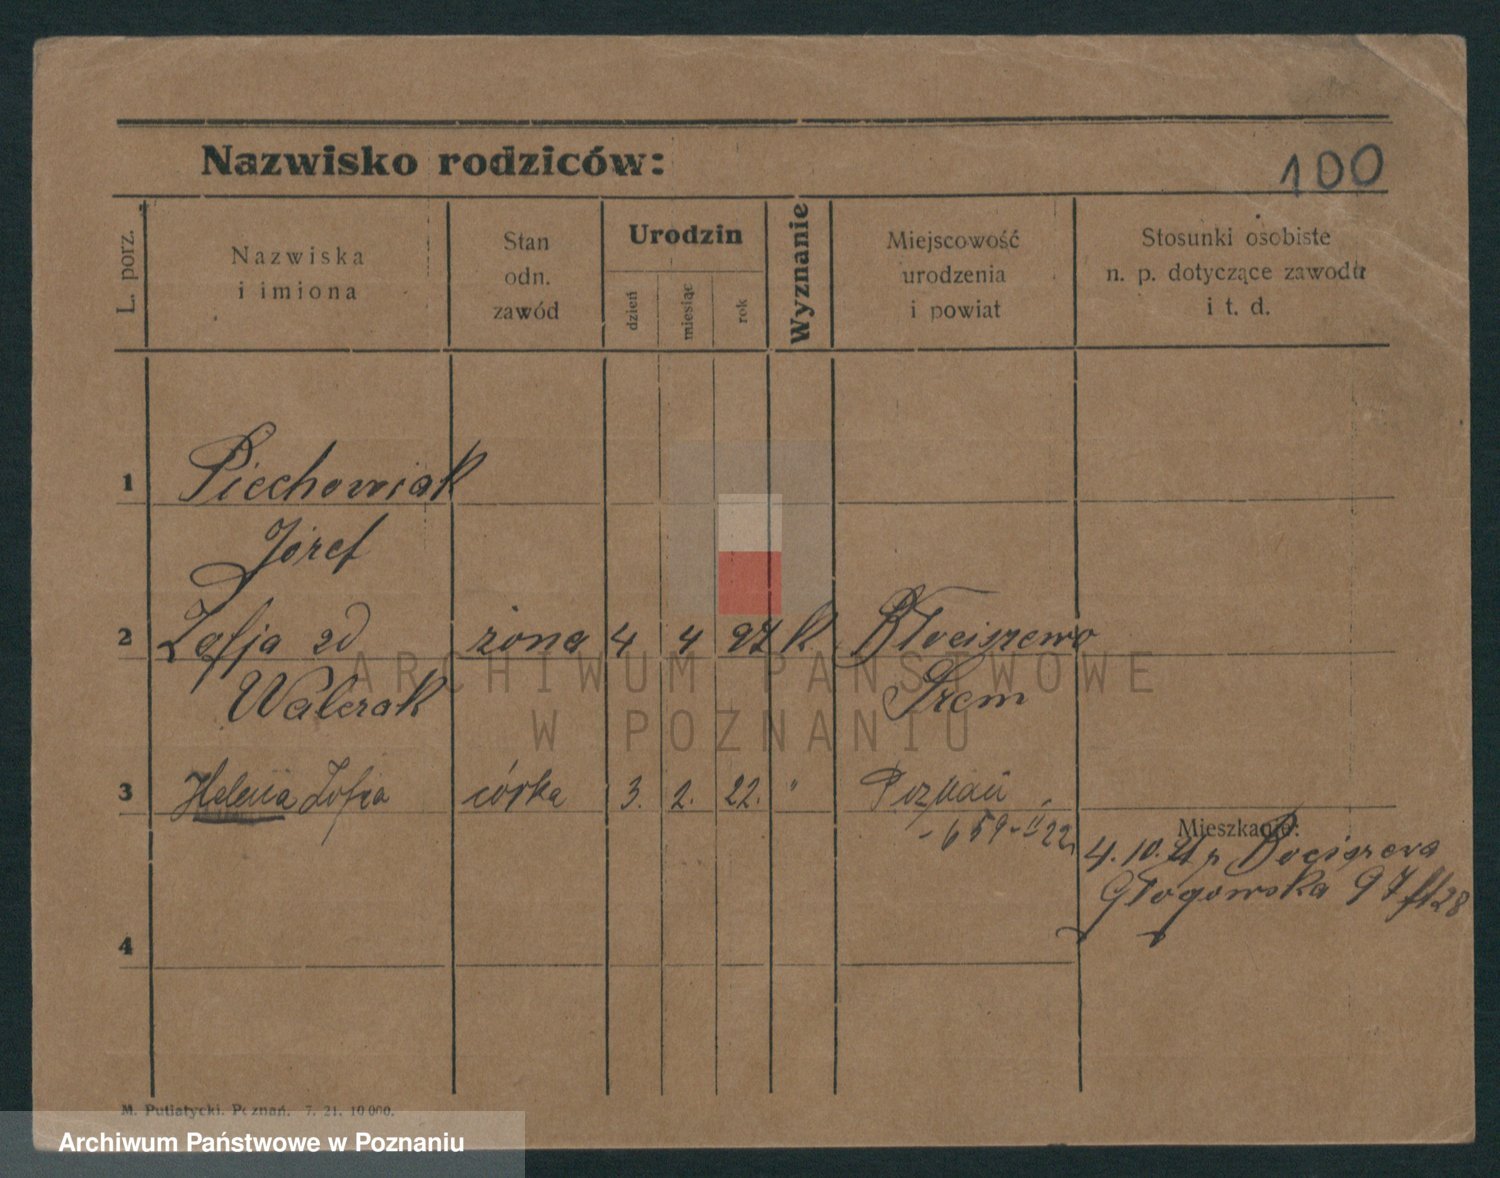 Nazwisko rodziców:
100
L. porz.
Nazwiska
i imiona
Stan
odn.
zawód
Urodzin
dzień
miesiąc
rok
Wyznanie
Miejscowość
urodzenia
i powiat
Stosunki osobiste
n. p. dotyczące zawodu
i t. d.
1 Piechowiak
Józef
2 Zofja zd żona 4 4 97 k Błociszewo
Walczak Śrem
3 Helena Zofia córka 3. 2. 22. " Poznań
- 659-II 22
Mieszkanie:
4. 10. 21 Bociszewa
Głogowska 97
4
M. Putiatycki. Poznań. 7. 21. 10000.
ARCHIWUM PAŃSTWOWE
W POZNANIU
Archiwum Państwowe w Poznaniu